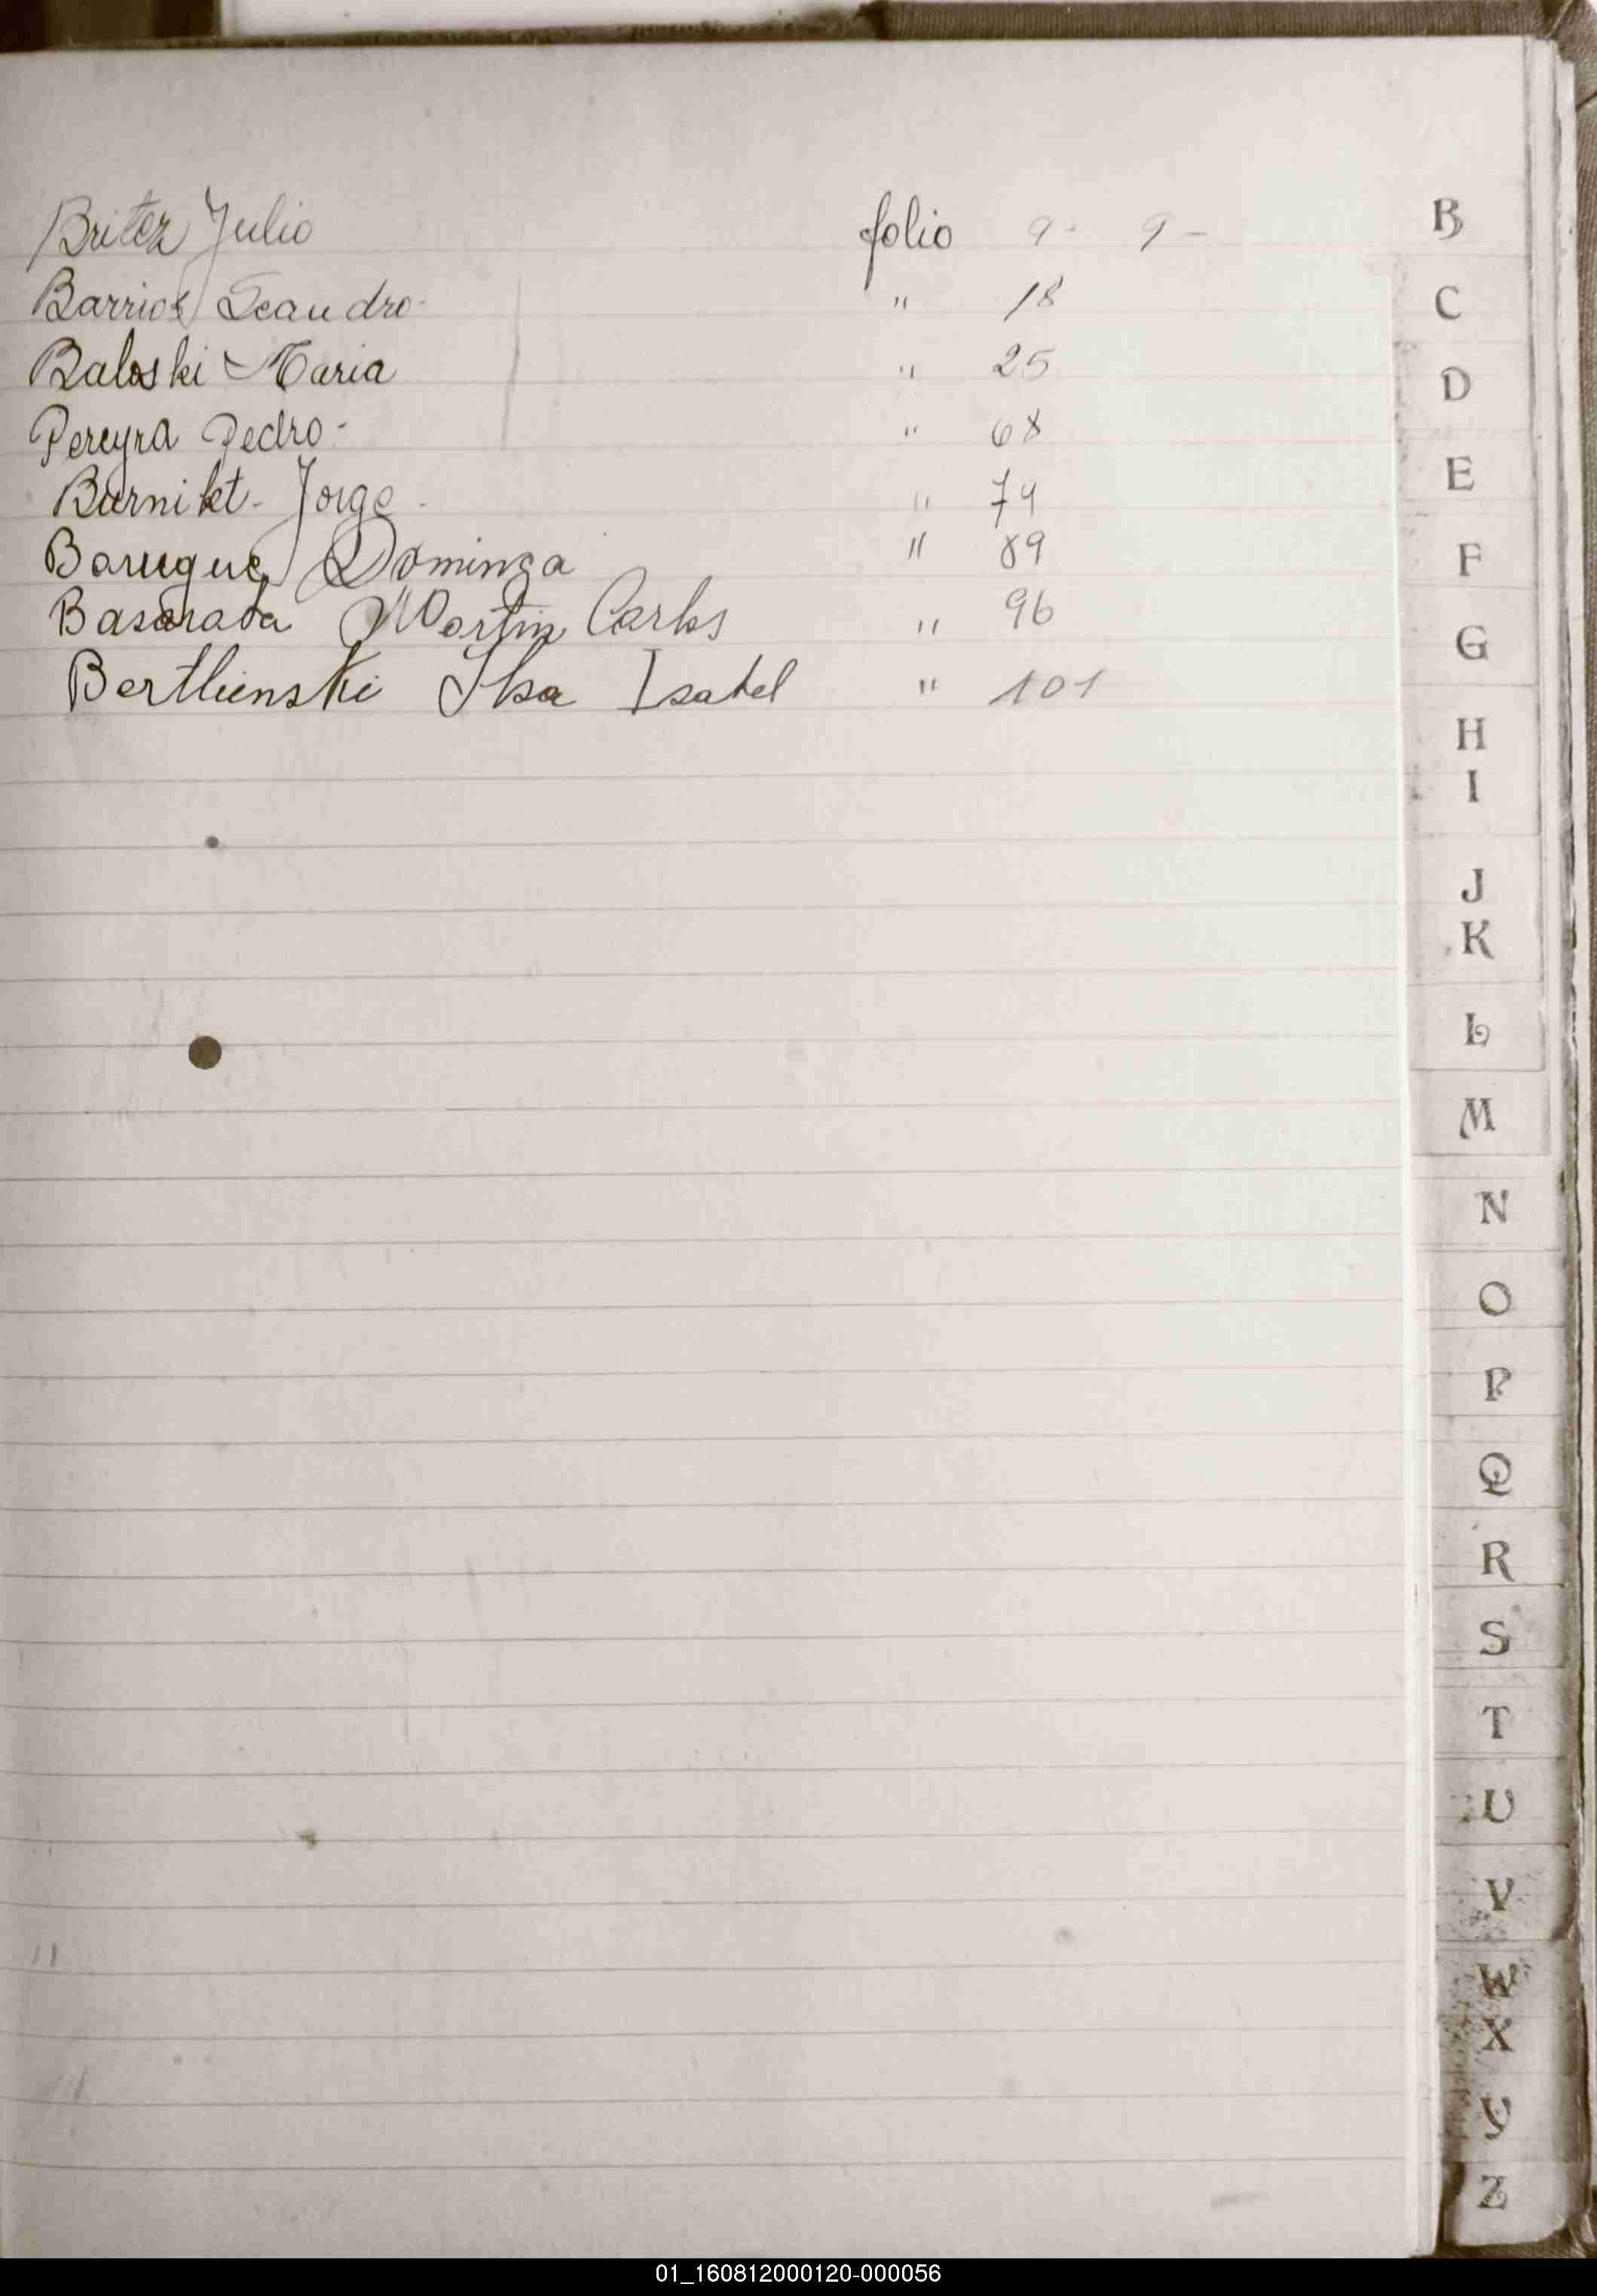 Britez Julio folio 9- 9-
Barrios Leandro- " 18
Baloski Maria " 25
Pereyra Pedro- " 68
Burnikt- Jorge " 79
Baruque Dominga " 89
Basaraba Martin Carlos " 96
Isabel " 101
B
C
D
E
F
G
H
I
J
K
L
M
N
O
P
Q
R
S
T
U
V
W
X
Y
Z
01_160812000120-000056